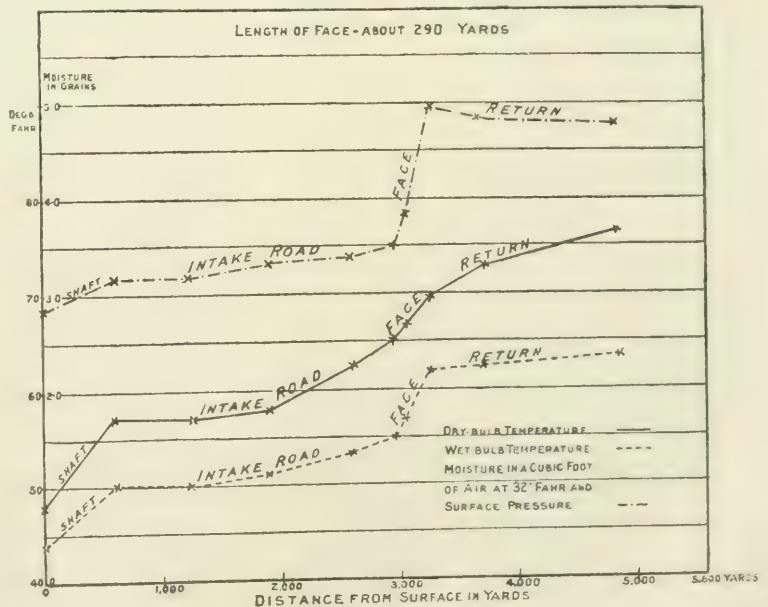 LENGTH OF FACE-ABOUT 290 YARDS
MOISTURE
IN GRAINS
DEGS
FAHR
5·0
80 4·0
70 3·0
60 2·0
50
40
SHAFT
INTAKE ROAD
FACE
RETURN
SHAFT
INTAKE ROAD
FACE
RETURN
SHAFT
INTAKE ROAD
FACE
RETURN
DRY-BULB TEMPERATURE
WET BULB TEMPERATURE
MOISTURE IN A CUBIC FOOT
OF AIR AT 32° FAHR AND
SURFACE PRESSURE
0 1,000 2,000 3,000 4,000 5,000 5,600 YARDS
DISTANCE FROM SURFACE IN YARDS